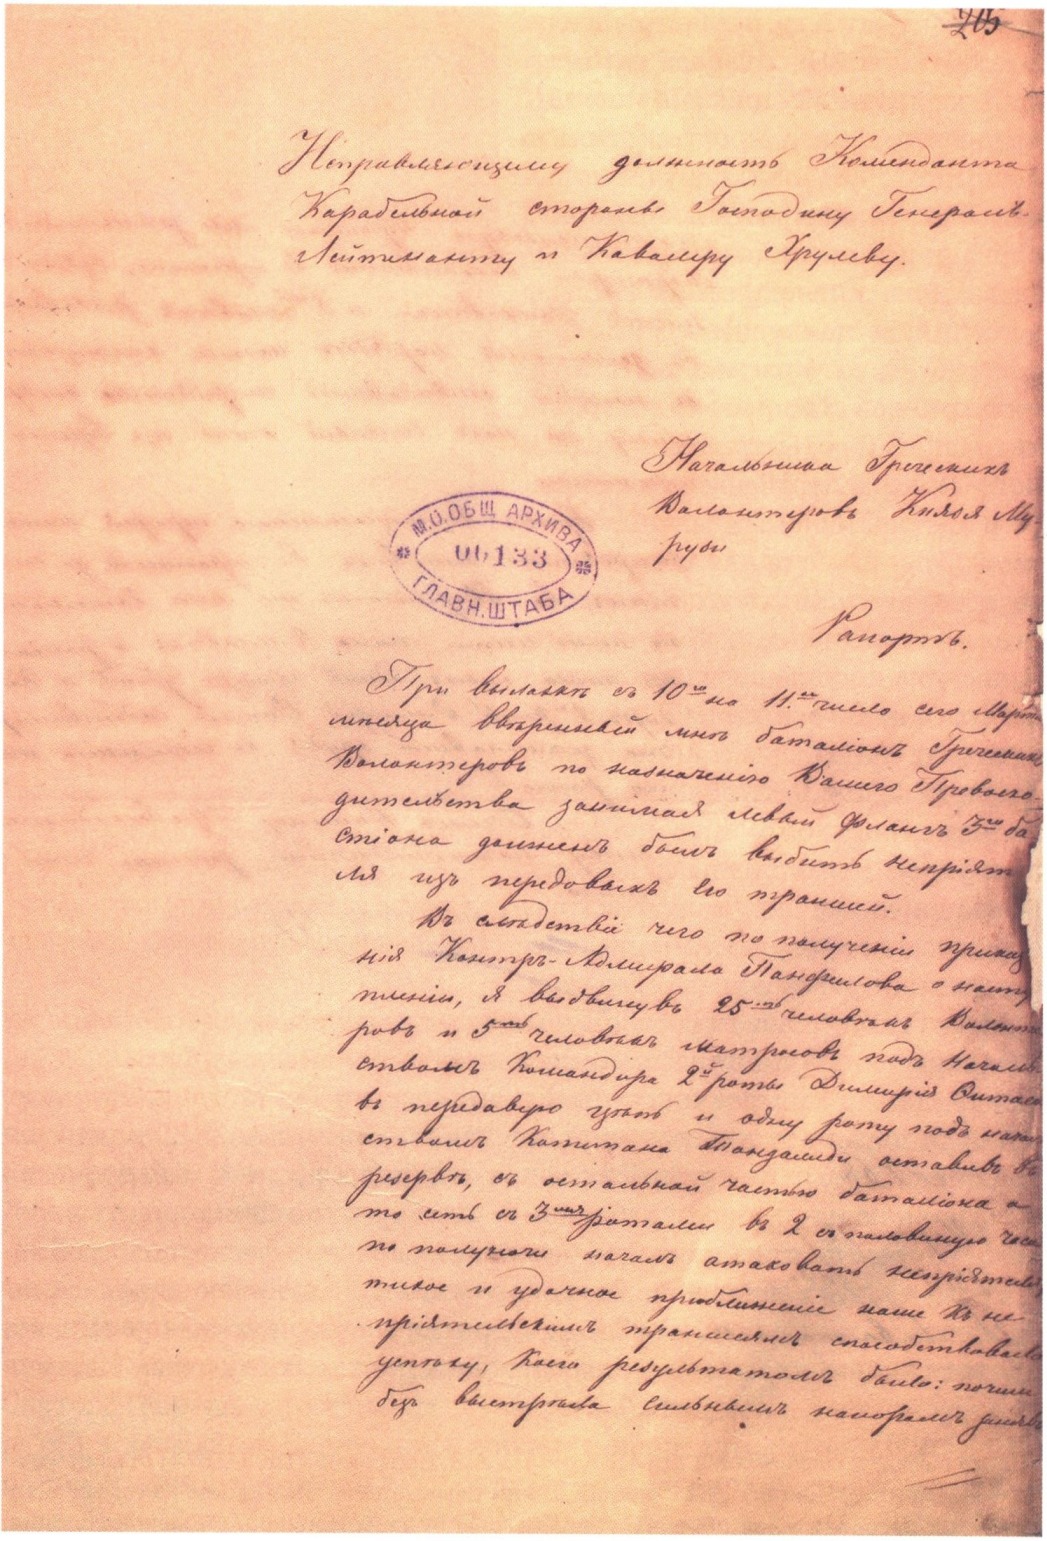 205
Исправляющему должность Коменданта
Карабельной стороны Господину Генералъ-
Лейтенанту и Кавалеру Хрулеву.
Начальника Греческихъ
Волонтеровъ Князя Му-
рузи
М.О.ОБЩ АРХИВА
06133
ГЛАВН.ШТАБА
Рапортъ.
При вылазкѣ съ 10го на 11.ое число сего Марта
мѣсяца ввѣренный мнѣ баталіонъ Греческихъ
Волонтеровъ по назначенію Вашего Превосхо-
дительства занимая левый флангъ 3го ба
стіона долженъ былъ выбить непріяте
ля изъ передовыхъ его траншей.
Въ слѣдствіе чего по полученіи приказ
нія Контръ-Адмирала Панфилова о насту
пленіи, я выдвинувъ 25ть человѣкъ Волонте
ровъ и 5ть человѣкъ матросовъ подъ началь
ствомъ Командира 2й роты Димитрія
въ передовую цѣпь и одну роту подъ началь
ствомъ Капитана оставивъ въ
резервѣ, съ остальной частью баталіона а
то есть съ 3мя ротами въ 2 съ половиною часа
по полуночи началъ атаковать непріятеля,
тихое и удачное приближеніе наше къ не
пріятельскимъ траншеямъ способствовало
успѣху, коего результатомъ было: почти
безъ выстрѣла сильнымъ напоромъ занявъ